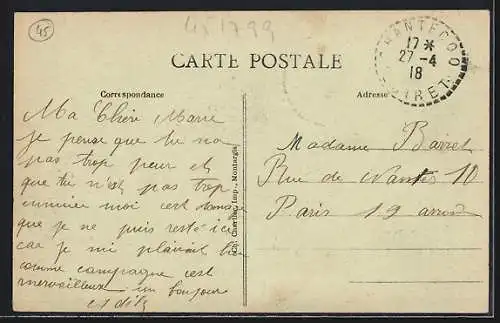 45
45 1799
CARTE POSTALE
Correspondance
Adresse
CHANTECOQ
17 *
27 - 4
18
LOIRET
Ma Chère Marie
je pense que tu na
pas trop peur et
que tu n'est pas trop
moi c'est domage
que je ne puis resté ici
car je mi plairait bien
comme campagne c'est
merveilleux un bonjour
Ch. Imp., Montargis
Madame Barret
Rue de Nantes 10
Paris 19 arron